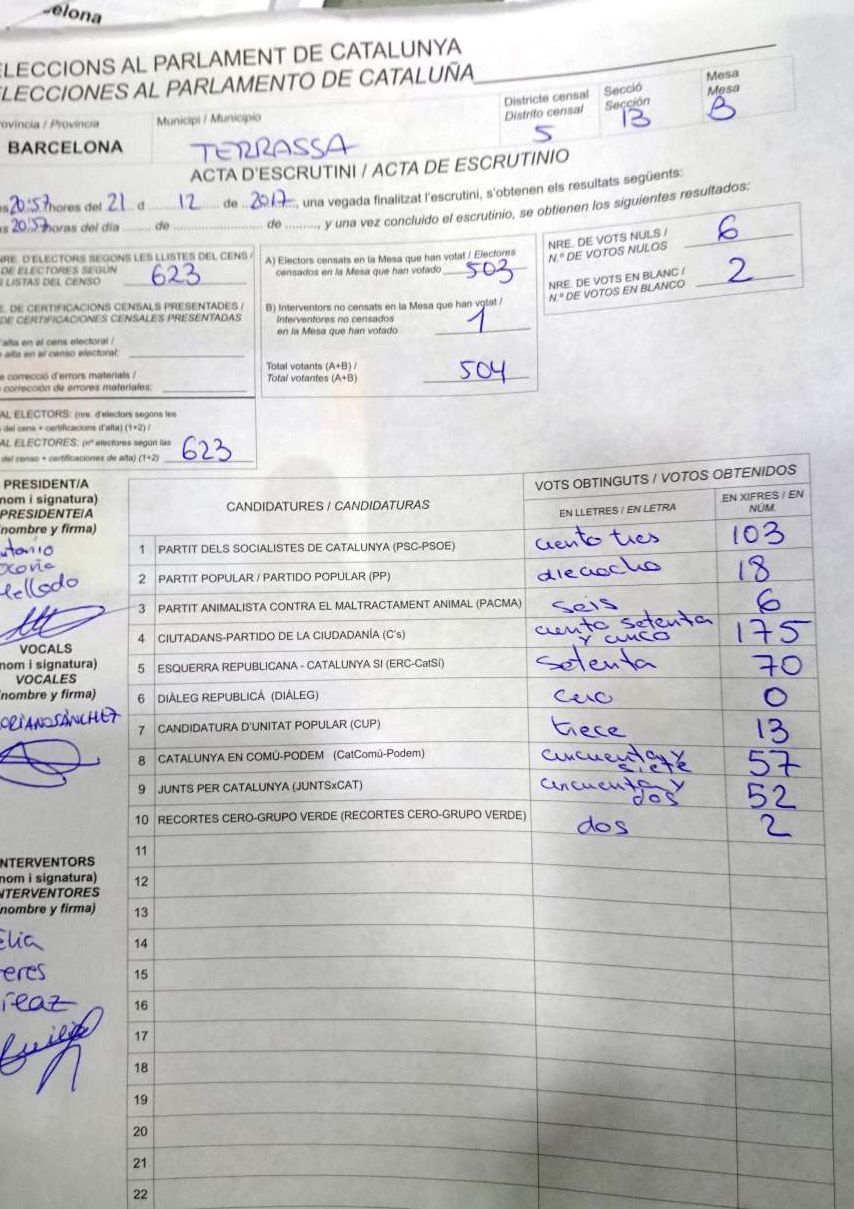 -elona
LECCIONS AL PARLAMENT DE CATALUNYA
LECCIONES AL PARLAMENTO DE CATALUÑA
ovíncia / Provincia
BARCELONA
Municipi / Municipio
TERRASSA
Districte censal
Distrito censal
5
Secció
Sección
13
Mesa
Mesa
B
ACTA D'ESCRUTINI / ACTA DE ESCRUTINIO
es 20:57 hores del 21 d 12 de 2017, una vegada finalitzat l'escrutini, s'obtenen els resultats següents:
as 20:57 horas del día ............ de ............ de ........, y una vez concluido el escrutinio, se obtienen los siguientes resultados:
NRE. D'ELECTORS SEGONS LES LLISTES DEL CENS /
DE ELECTORES SEGÚN
LISTAS DEL CENSO 623
E. DE CERTIFICACIONS CENSALS PRESENTADES /
DE CERTIFICACIONES CENSALES PRESENTADAS
'alta en el cens electoral /
alta en el censo electoral:
e correcció d'errors materials /
corrección de errores materiales:
AL ELECTORS: (nre. d'electors segons les
del cens + certificacions d'alta) (1+2) /
AL ELECTORES: (nº electores según las
del censo + certificaciones de alta) (1+2) 623
A) Electors censats en la Mesa que han votat / Electores
censados en la Mesa que han votado 503
B) Interventors no censats en la Mesa que han votat /
Interventores no censados
en la Mesa que han votado 1
Total votants (A+B) /
Total votantes (A+B) 504
NRE. DE VOTS NULS /
N.º DE VOTOS NULOS 6
NRE. DE VOTS EN BLANC /
N.º DE VOTOS EN BLANCO 2
PRESIDENT/A
nom i signatura)
PRESIDENTE/A
nombre y firma)
ntonio
ellado
VOCALS
nom i signatura)
VOCALES
nombre y firma)
ORIANO SÁNCHEZ
INTERVENTORS
nom i signatura)
NTERVENTORES
nombre y firma)
elia
eres
CANDIDATURES / CANDIDATURAS
VOTS OBTINGUTS / VOTOS OBTENIDOS
EN LLETRES / EN LETRA
EN XIFRES / EN
NÚM.
1 PARTIT DELS SOCIALISTES DE CATALUNYA (PSC-PSOE) ciento tres 103
2 PARTIT POPULAR / PARTIDO POPULAR (PP) dieciocho 18
3 PARTIT ANIMALISTA CONTRA EL MALTRACTAMENT ANIMAL (PACMA) seis 6
4 CIUTADANS-PARTIDO DE LA CIUDADANÍA (C's) ciento setenta y cinco 175
5 ESQUERRA REPUBLICANA - CATALUNYA SI (ERC-CatSí) setenta 70
6 DIÀLEG REPUBLICÀ (DIÀLEG) cero 0
7 CANDIDATURA D'UNITAT POPULAR (CUP) trece 13
8 CATALUNYA EN COMÚ-PODEM (CatComú-Podem) cincuenta y siete 57
9 JUNTS PER CATALUNYA (JUNTSxCAT) cincuenta y dos 52
10 RECORTES CERO-GRUPO VERDE (RECORTES CERO-GRUPO VERDE) dos 2
11
12
13
14
15
16
17
18
19
20
21
22